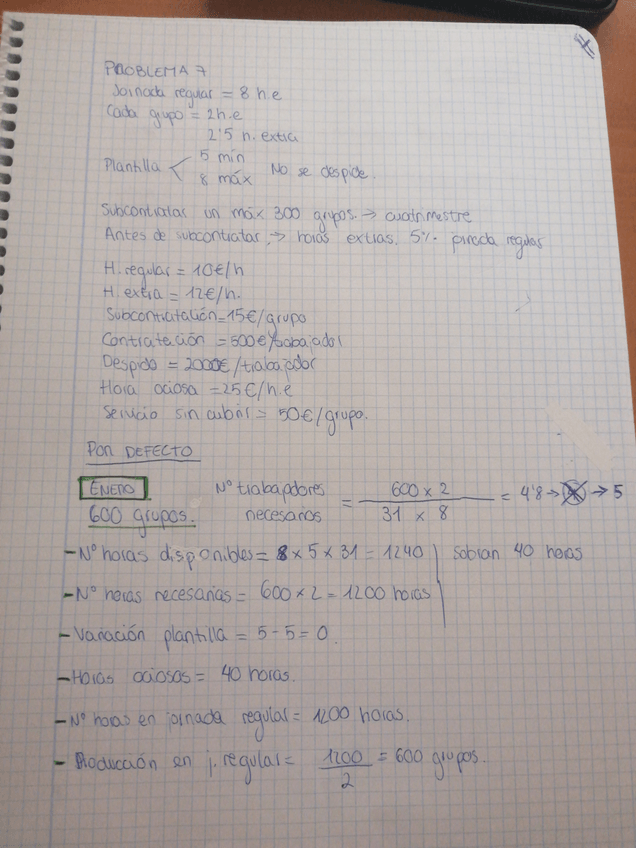 PROBLEMA 7
Jornada regular = 8 h.e
Cada grupo = 2h.e
2'5 h. extra
Plantilla < 5 mín
8 máx No se despide.
Subcontratar un máx 300 grupos. → cuatrimestre
Antes de subcontratar, → horas extras. 5% jornada regular
H. regular = 10€/h
H. extra = 12€/h.
Subcontratación = 15€/grupo
Contratación = 500€/trabajador
Despido = 2000€/trabajador
Hora ociosa = 25€/h.e
Servicio sin cubrir = 50€/grupo.
POR DEFECTO
ENERO
600 grupos.
Nº trabajadores necesarios = 600 x 2 / 31 x 8 = 4'8 → → 5
- Nº horas disponibles = 8 x 5 x 31 = 1240 | Sobran 40 horas
- Nº horas necesarias = 600 x 2 = 1200 horas
- Variación plantilla = 5 - 5 = 0.
- Horas ociosas = 40 horas.
- Nº horas en jornada regular = 1200 horas.
- Producción en j. regular = 1200 / 2 = 600 grupos.